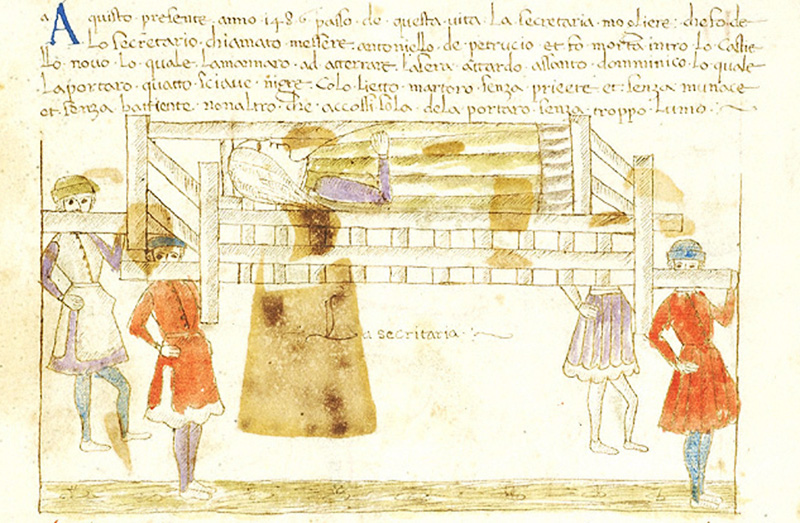 A quisto presente anno 1486 passo de questa vita La secretaria moliere che fo de
Lo secretario chiamato messere antoniello de petrucio et fo morta intro Lo Castie
llo novo Lo quale La mannaro ad atterrare La sera attardo assanto domminico Lo quale
La portaro quatto sciave nigre Colo lietto martoro senza prieite et senza munace
et senza battiente non altro che accossi sola de la portaro senza troppo Lumo
La secritaria